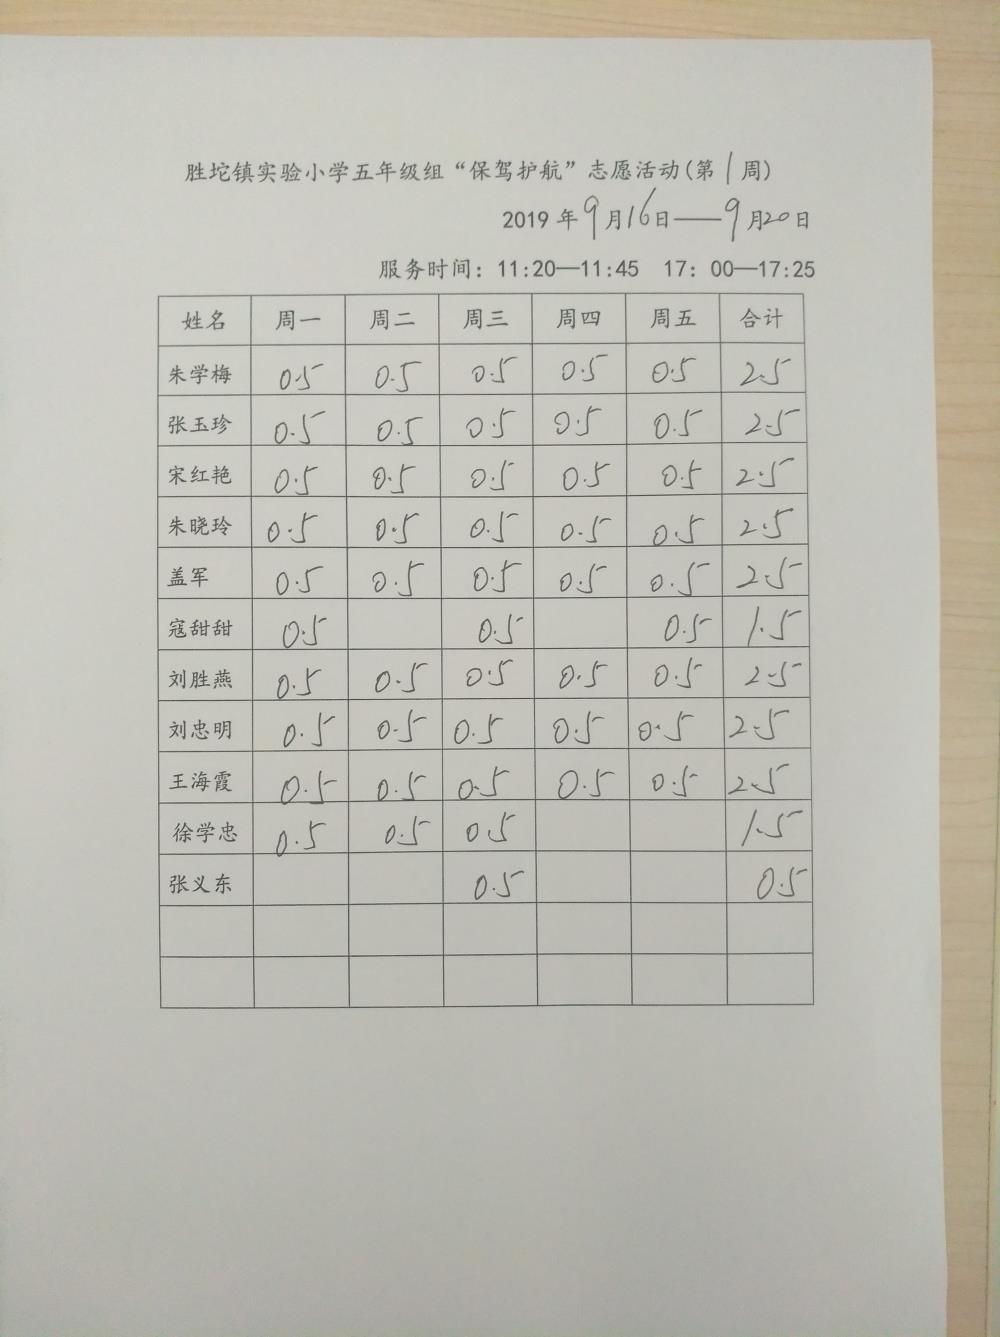 胜坨镇实验小学五年级组“保驾护航”志愿活动(第1周)
2019年9月16日——9月20日
服务时间：11:20—11:45 17：00—17:25
姓名 周一 周二 周三 周四 周五 合计
朱学梅 0.5 0.5 0.5 0.5 0.5 2.5
张玉珍 0.5 0.5 0.5 0.5 0.5 2.5
宋红艳 0.5 0.5 0.5 0.5 0.5 2.5
朱晓玲 0.5 0.5 0.5 0.5 0.5 2.5
盖军 0.5 0.5 0.5 0.5 0.5 2.5
寇甜甜 0.5 0.5 0.5 1.5
刘胜燕 0.5 0.5 0.5 0.5 0.5 2.5
刘忠明 0.5 0.5 0.5 0.5 0.5 2.5
王海霞 0.5 0.5 0.5 0.5 0.5 2.5
徐学忠 0.5 0.5 0.5 1.5
张义东 0.5 0.5